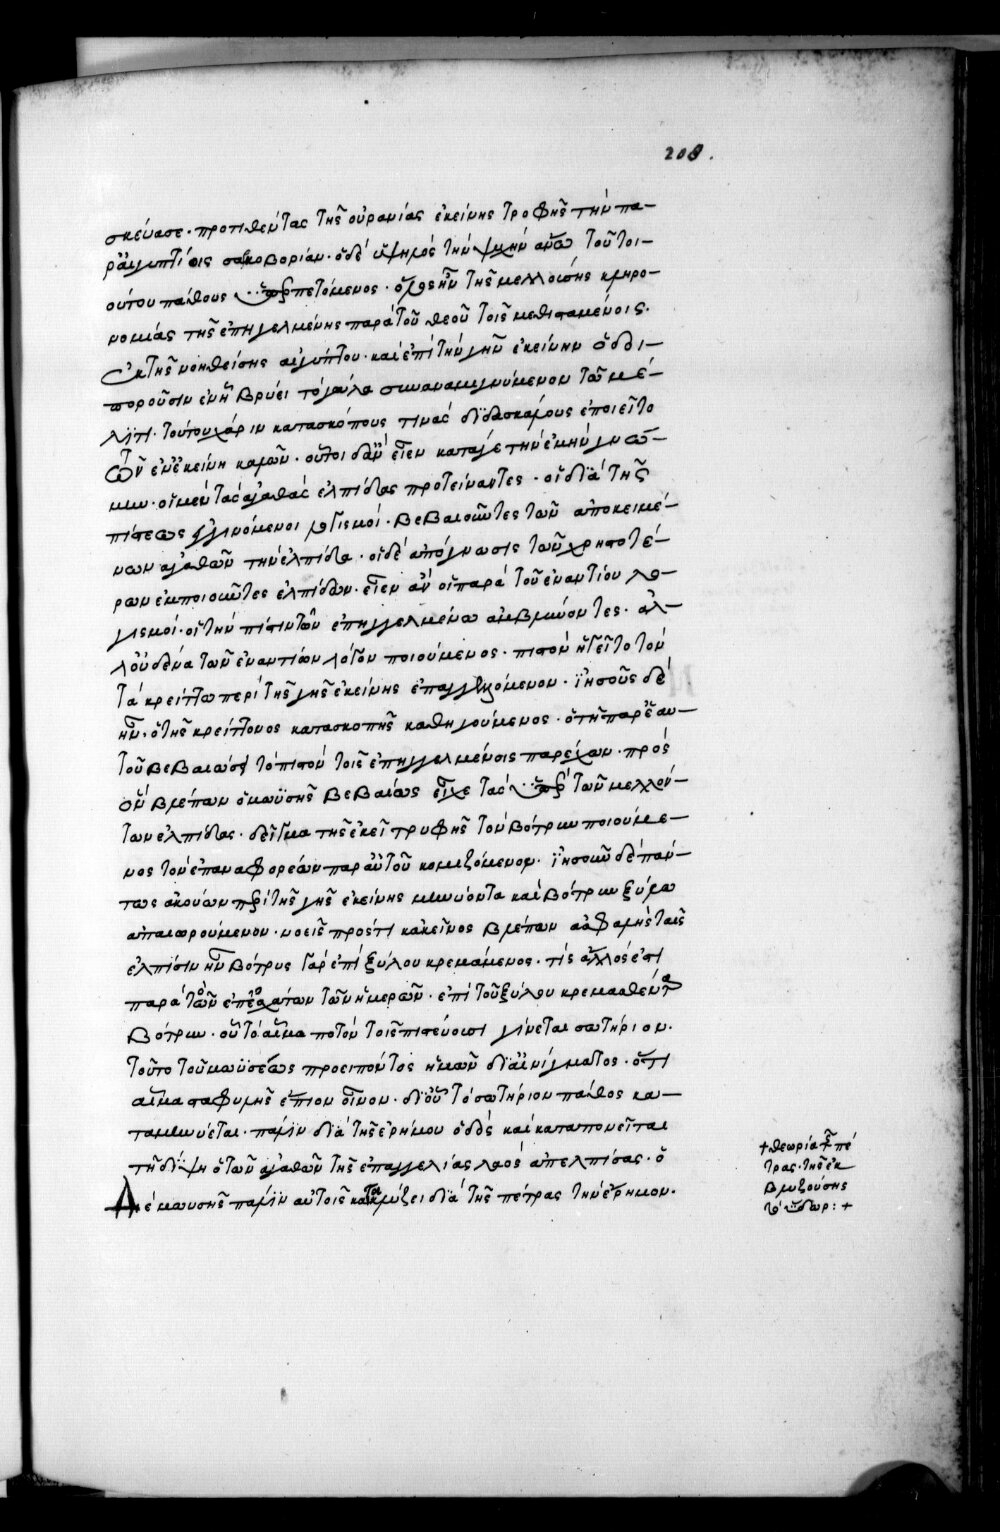 208.
σκεύασε· προτιθέντας τῆς οὐρανίας ἐκείνης τροφῆς τὴν πα-
ρ' αἰγυπτίοις σαρκοβορίαν· ὁ δὲ ὑψηλὸς τὴν ψυχὴν ἄνω τοῦ τοι-
ούτου πάθους ὑπερπετόμενος· ὅλος ἦν τῆς μελλούσης κληρο-
νομίας τῆς ἐπηγγελμένης παρὰ τοῦ θεοῦ τοῖς μεθισταμένοις·
ἐκ τῆς νοηθείσης αἰγύπτου· καὶ ἐπὶ τὴν γῆν ἐκείνην ὁδοι-
ποροῦσιν ἐν ἧ βρύει τὸ γάλα συναναμιγνύμενον τῶ μέ-
λιτι· τούτου χάριν κατασκόπους τινὰς διδασκάλους ἐποιεῖτο
τῶν ἐν ἐκείνη καλῶν· οὗτοι δ' ἂν εἶεν κατά γε τὴν ἐμὴν γνώ-
μην· οἱ μὲν τὰς ἀγαθὰς ἐλπίδας προτείναντες· οἱ διὰ τῆς
πίστεως ἐγγινόμενοι λογισμοί· βεβαιοῦντες τῶν ἀποκειμέ-
νων ἀγαθῶν τὴν ἐλπίδα· οἱ δὲ ἀπόγνωσις τῶν χρηστοτέ-
ρων ἐμποιοῦντες ἐλπίδων· εἶεν ἂν οἱ παρὰ τοῦ ἐναντίου λο-
γισμοί· οἱ τὴν πίστιν τῶν ἐπηγγελμένω ἀμβλύνοντες· ἀλ-
λ' οὐδένα τῶν ἐναντίων λόγον ποιούμενος· πιστὸν ἡγεῖτο τὸν
τὰ κρείττω περὶ τῆς γῆς ἐκείνης ἐπαγγελλόμενον· ἰησοῦς δὲ
ἦν· ὁ τῆς κρείττονος κατασκοπῆς καθηγούμενος· ὁ τῆ παρ' ἑαυ-
τοῦ βεβαιώσει τὸ πιστὸν τοῖς ἐπηγγελμένοις παρέχων· πρὸς
ὃν βλέπων ὁ μωϋσῆς βεβαίως εἶχε τὰς ὑπὲρ τῶν μελλόν-
των ἐλπίδας· δεῖγμα τῆς ἐκεῖ τρυφῆς τὸν βότρυν ποιούμε-
νος τὸν ἐπ' ἀναφορέων παρ' αὐτοῦ κομιζόμενον· ἰησοῦν δὲ πάν-
τως ἀκούων περὶ τῆς γῆς ἐκείνης μηνύοντα καὶ βότρυν ξύλω
ἀπαιωρούμενον· νοεῖς πρὸς τί κἀκεῖνος βλέπων ἀσφαλὴς ταῖς
ἐλπίσιν ἦν βότρυς γὰρ ἐπὶ ξύλου κρεμάμενος· τίς ἄλλος ἐστὶ
παρὰ τὸν ἐπ' ἐσχάτων τῶν ἡμερῶν· ἐπὶ τοῦ ξύλου κρεμασθέντα
βότρυν· οὗ τὸ αἷμα ποτὸν τοῖς πιστεύουσι γίνεται σωτήριον·
τοῦτο τοῦ μωϋσέως προειπόντος ἡμῶν δι' αἰνίγματος· ὅτι
αἷμα σταφυλῆς ἔπιον οἶνον· δι' οὗ τὸ σωτήριον πάθος κα-
ταμηνύεται· πάλιν διὰ τῆς ἐρήμου ὁδὸς καὶ καταπονεῖται
τῆ δίψη ὁ τῶν ἀγαθῶν τῆς ἐπαγγελίας λαὸς ἀπελπίσας· ὁ
δὲ μωυσῆς πάλιν αὐτοῖς κατακλύζει διὰ τῆς πέτρας τὴν ἔρημον·
+ θεωρία τῆς πέ
τρας· τῆς ἐκ
βλυζούσης
τὸ ὕδωρ: +